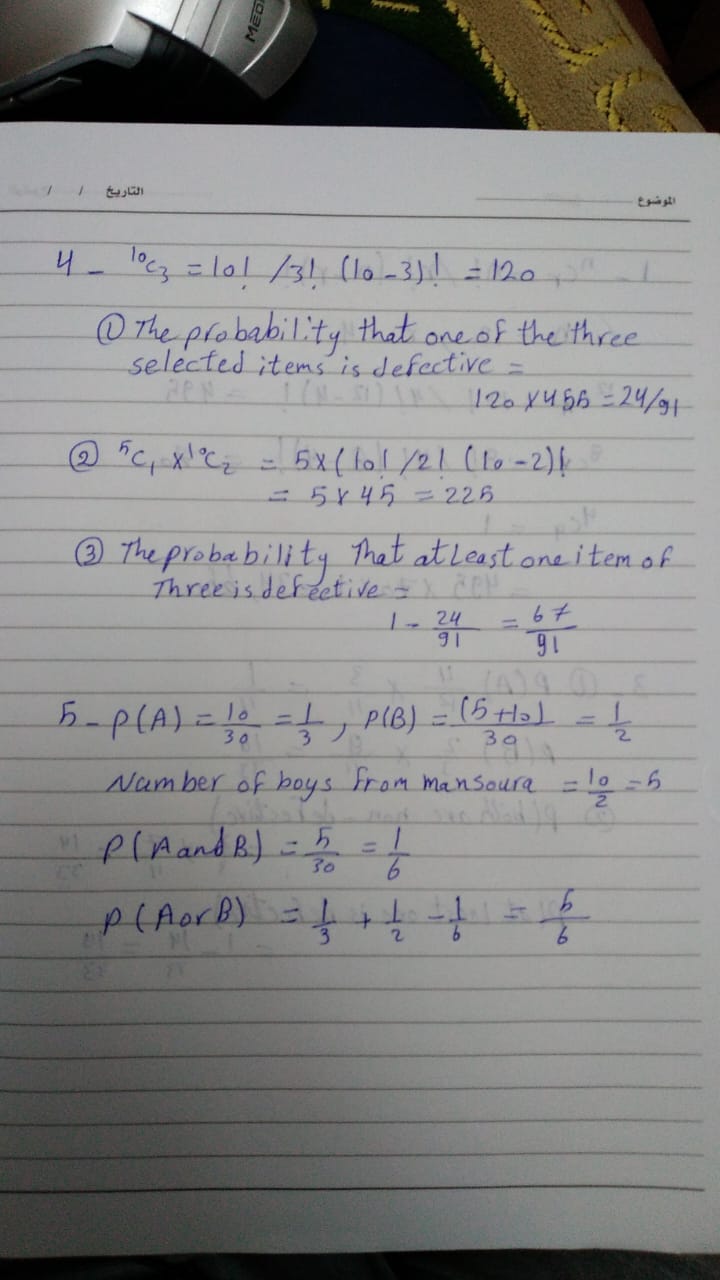 MEDI
التاريخ / /
الموضوع
4 - ¹⁰C₃ = 10! /3! (10-3)! = 120
① The probability that one of the three
selected items is defective =
120 x 455 = 24/91
② ⁵C₁ x ¹⁰C₂ = 5x(10! /2! (10-2)!
= 5 x 45 = 225
③ The probability That at Least one item of
Three is defective =
1 - 24/91 = 67/91
5 - P(A) = 10/30 = 1/3 , P(B) = (5+10)/30 = 1/2
Number of boys from mansoura = 10/2 = 5
P(A and B) = 5/30 = 1/6
P(A or B) = 1/3 + 1/2 - 1/6 = 5/6